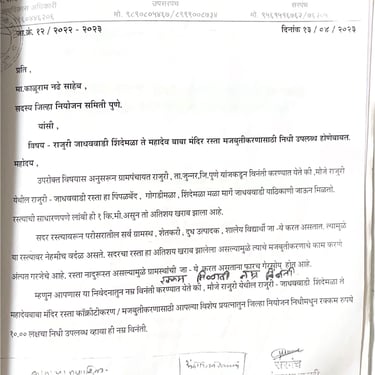 उपसरपंच सरपंच
जा.क्रं. १२ / २०२२ - २०२३ दिनांक १३ / ०४ / २०२३
प्रति ,
मा.काळूराम नढे साहेब ,
सदस्य जिल्हा नियोजन समिती पुणे.
यांसी ,
विषय - राजुरी जाधववाडी शिंदेमळा ते महादेव बाबा मंदिर रस्ता मजबुतीकरणासाठी निधी उपलब्ध होणेबाबत.
महोदय ,
उपरोक्त विषयास अनुसरून ग्रामपंचायत राजुरी , ता.जुन्नर,जि.पुणे यांजकडून विनंती करण्यात येते की ,मौजे राजुरी
येथील राजुरी - जाधववाडी रस्ता हा पिंपळबेंद , गोगडीमळा, शिंदेमळा मळा मार्गे जाधववाडी याठिकाणी जाऊन मिळतो.
रस्त्याची साधारणपणे लांबी ही १ कि.मी.असुन तो अतिशय खराब झाला आहे.
सदर रस्त्यावरून परीसरातील सर्व ग्रामस्थ , शेतकरी , दुध उत्पादक , शालेय विद्यार्थी जा -ये करत असतात. त्यामुळे
या रस्त्यावर नेहमीच वर्दळ असते. सदरचा रस्ता हा अतिशय खराब झालेला असल्यामुळे त्याचे मजबुतीकरणाचे काम करणे
अंत्यत गरजेचे आहे. रस्ता नादुरूस्त असल्यामुळे ग्रामस्थांची जा - ये करत असताना फारच गैरसोय होत आहे.
म्हणुन आपणास या निवेदनातुन नम्र विनंती करण्यात येते की , मौजे राजुरी येथील राजुरी - जाधववाडी शिंदेमळा ते
महादेवबाबा मंदिर रस्ता काँक्रीटीकरण / मजबुतीकरणासाठी आपल्या विशेष प्रयत्नातुन जिल्हा नियोजन निधीमधुन रक्कम रुपये
१०.०० लक्षचा निधी उपलब्ध व्हावा ही नम्र विनंती.
सरपंच